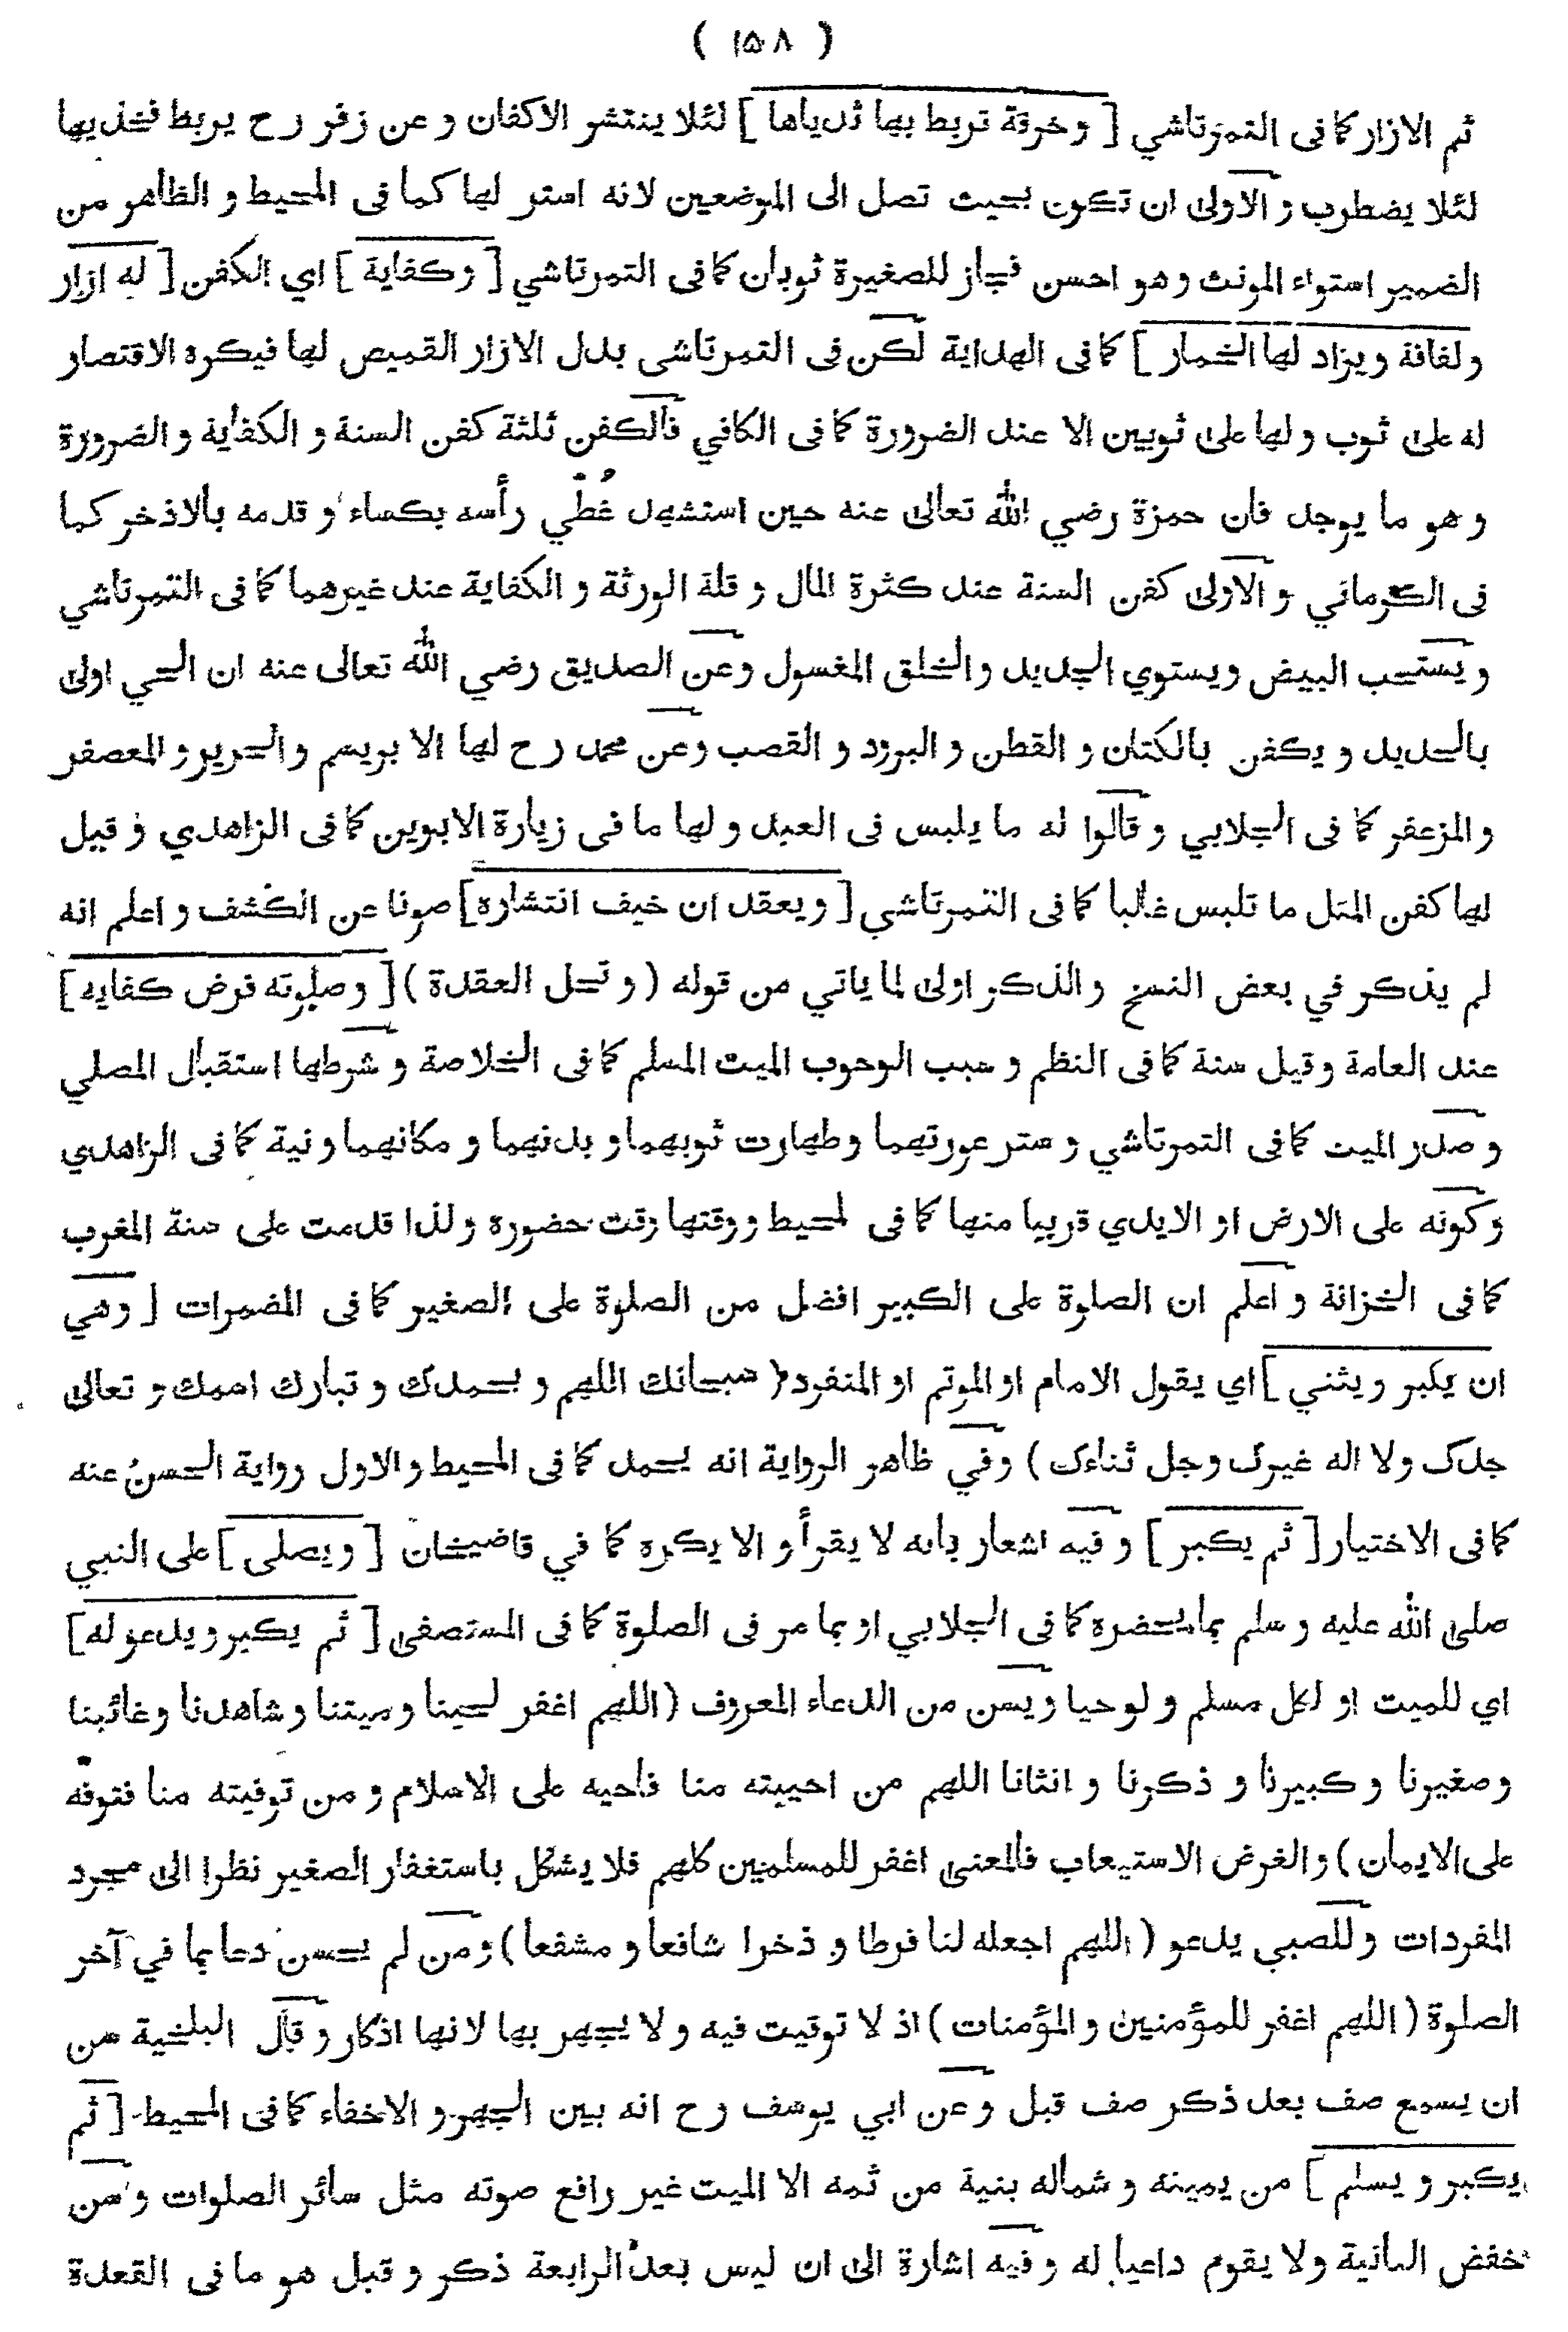 ( ١٥٨ )
ثم الازار كما فى التمرتاشي [ وخرقة تربط بها ثدياها ] لئلا ينتشر الاكفان و عن زفر رح يربط فخذيها
لئلا يضطرب و الاولى ان تكون بحيث تصل الى الموضعين لانه استر لها كما فى المحيط و الظاهر من
الضمير استواء المونث وهو احسن فجاز للصغيرة ثوبان كما فى التمرتاشي [ وكفاية ] اي الكفن [ له ازار
ولفافة ويزاد لها الخمار ] كما فى الهداية لكن فى التمرتاشى بدل الازار القميص لها فيكره الاقتصار
له على ثوب ولها على ثوبين الا عند الضرورة كما فى الكافي فالكفن ثلثة كفن السنة و الكفاية و الضرورة
وهو ما يوجد فان حمزة رضي الله تعالى عنه حين استشهد غُطّي رأسه بكساء و قدمه بالاذخر كما
فى الكرماني و الاولى كفن السنة عند كثرة المال و قلة الورثة و الكفاية عند غيرهما كما فى التمرتاشي
ويستحب البيض ويستوي الجديد والخلق المغسول وعن الصديق رضي الله تعالى عنه ان الحي اولى
بالجديد و يكفن بالكتان و القطن و البرود و القصب وعن محمد رح لها الا بريسم والحرير و المعصفر
والمزعفر كما فى الجلابي و قالوا له ما يلبس فى العيد و لها ما فى زيارة الابوين كما فى الزاهدي و قيل
لها كفن المثل ما تلبس غالبا كما فى التمرتاشي [ ويعقد ان خيف انتشاره ] صونا عن الكشف و اعلم انه
لم يذكر في بعض النسخ والذكر اولى لما ياتي من قوله ( و تحل العقدة ) [ وصلوته فرض كفايه ]
عند العامة وقيل سنة كما فى النظم و سبب الوجوب الميت المسلم كما فى الخلاصة و شرطها استقبال المصلي
و صدر الميت كما فى التمرتاشي و ستر عورتهما و طهارت ثوبهما و بدنهما و مكانهما و نية كما فى الزاهدي
وكونه على الارض او الايدي قريبا منها كما فى لمحيط ووقتها وقت حضوره و لذا قدمت على سنة المغرب
كما فى الخزانة و اعلم ان الصلوة على الكبير افضل من الصلوة على الصغير كما فى المضمرات [ وهي
ان يكبر ويثني ] اي يقول الامام او الموتم او المنفرد ( سبحانك اللهم و بحمدك و تبارك اسمك و تعالى
جدك ولا اله غيرك وجل ثناءك ) وفي ظاهر الرواية انه يحمد كما فى المحيط والاول رواية الحسن عنه
كما فى الاختيار [ ثم يكبر ] و فيه اشعار بانه لا يقرأ و الا يكره كما في قاضيخان [ ويصلى ] على النبي
صلى الله عليه و سلم بما يحضره كما فى الجلابي او بما مر فى الصلوة كما فى المستصفى [ ثم يكبر ويدعو له ]
اي للميت او لكل مسلم و لو حيا ويسن من الدعاء المعروف ( اللهم اغفر لحينا وميتنا وشاهدنا وغائبنا
وصغيرنا و كبيرنا و ذكرنا و انثانا اللهم من احييته منا فاحيه على الاسلام و من توفيته منا فتوفّه
على الايمان ) و الغرض الاستيعاب فالمعنى اغفر للمسلمين كلهم فلا يشكل باستغفار الصغير نظرا الى مجرد
المفردات وللصبي يدعو ( اللهم اجعله لنا فرطا و ذخرا شافعا و مشفعا ) و من لم يحسن دعا بما في آخر
الصلوة ( اللهم اغفر للمؤمنين و المؤمنات ) اذ لا توقيت فيه و لا يجهر بها لانها اذكار و قال البلخية من
ان يسمع صف بعد ذكر صف قبل وعن ابي يوسف رح انه بين الجهر و الاخفاء كما فى المحيط [ ثم
يكبر و يسلم ] من يمينه و شماله بنية من ثمه الا الميت غير رافع صوته مثل سائر الصلوات و سن
خفض الثانية ولا يقوم داعيا له و فيه اشارة الى ان ليس بعد الرابعة ذكر و قيل هو ما فى القعدة